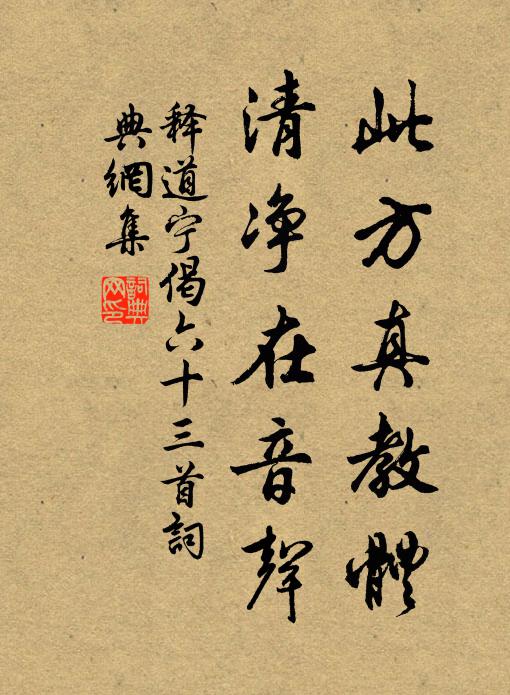 此方真教體
清净在音聲
释道宁偈六十三首詞
典網集
詞典網印